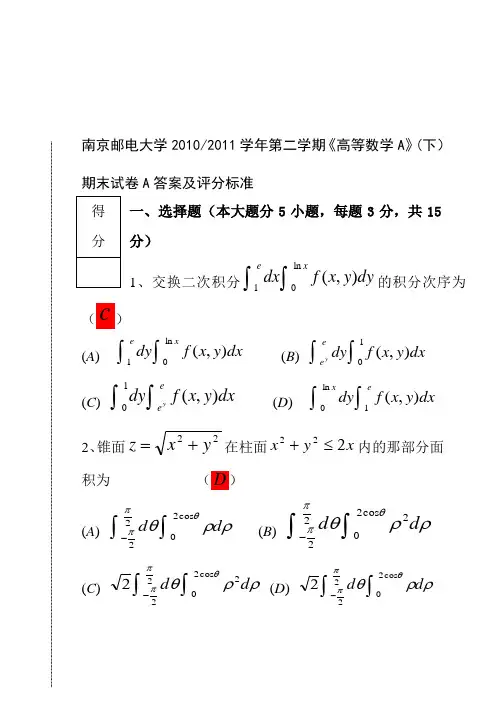 南京邮电大学2010/2011学年第二学期《高等数学A》(下)
期末试卷A答案及评分标准
得分
一、选择题（本大题分5小题，每题3分，共15分）
1、交换二次积分 $\int_{1}^{e} dx \int_{0}^{\ln x} f(x,y)dy$ 的积分次序为
（c）
(A) $\int_{1}^{e} dy \int_{0}^{\ln x} f(x,y)dx$ (B) $\int_{e^y}^{e} dy \int_{0}^{1} f(x,y)dx$
(C) $\int_{0}^{1} dy \int_{e^y}^{e} f(x,y)dx$ (D) $\int_{0}^{\ln x} dy \int_{1}^{e} f(x,y)dx$
2、锥面 $z = \sqrt{x^2 + y^2}$ 在柱面 $x^2 + y^2 \le 2x$ 内的那部分面
积为 （D）
(A) $\int_{-\frac{\pi}{2}}^{\frac{\pi}{2}} d\theta \int_{0}^{2\cos\theta} \rho d\rho$ (B) $\int_{-\frac{\pi}{2}}^{\frac{\pi}{2}} d\theta \int_{0}^{2\cos\theta} \rho^2 d\rho$
(C) $\sqrt{2} \int_{-\frac{\pi}{2}}^{\frac{\pi}{2}} d\theta \int_{0}^{2\cos\theta} \rho^2 d\rho$ (D) $\sqrt{2} \int_{-\frac{\pi}{2}}^{\frac{\pi}{2}} d\theta \int_{0}^{2\cos\theta} \rho d\rho$